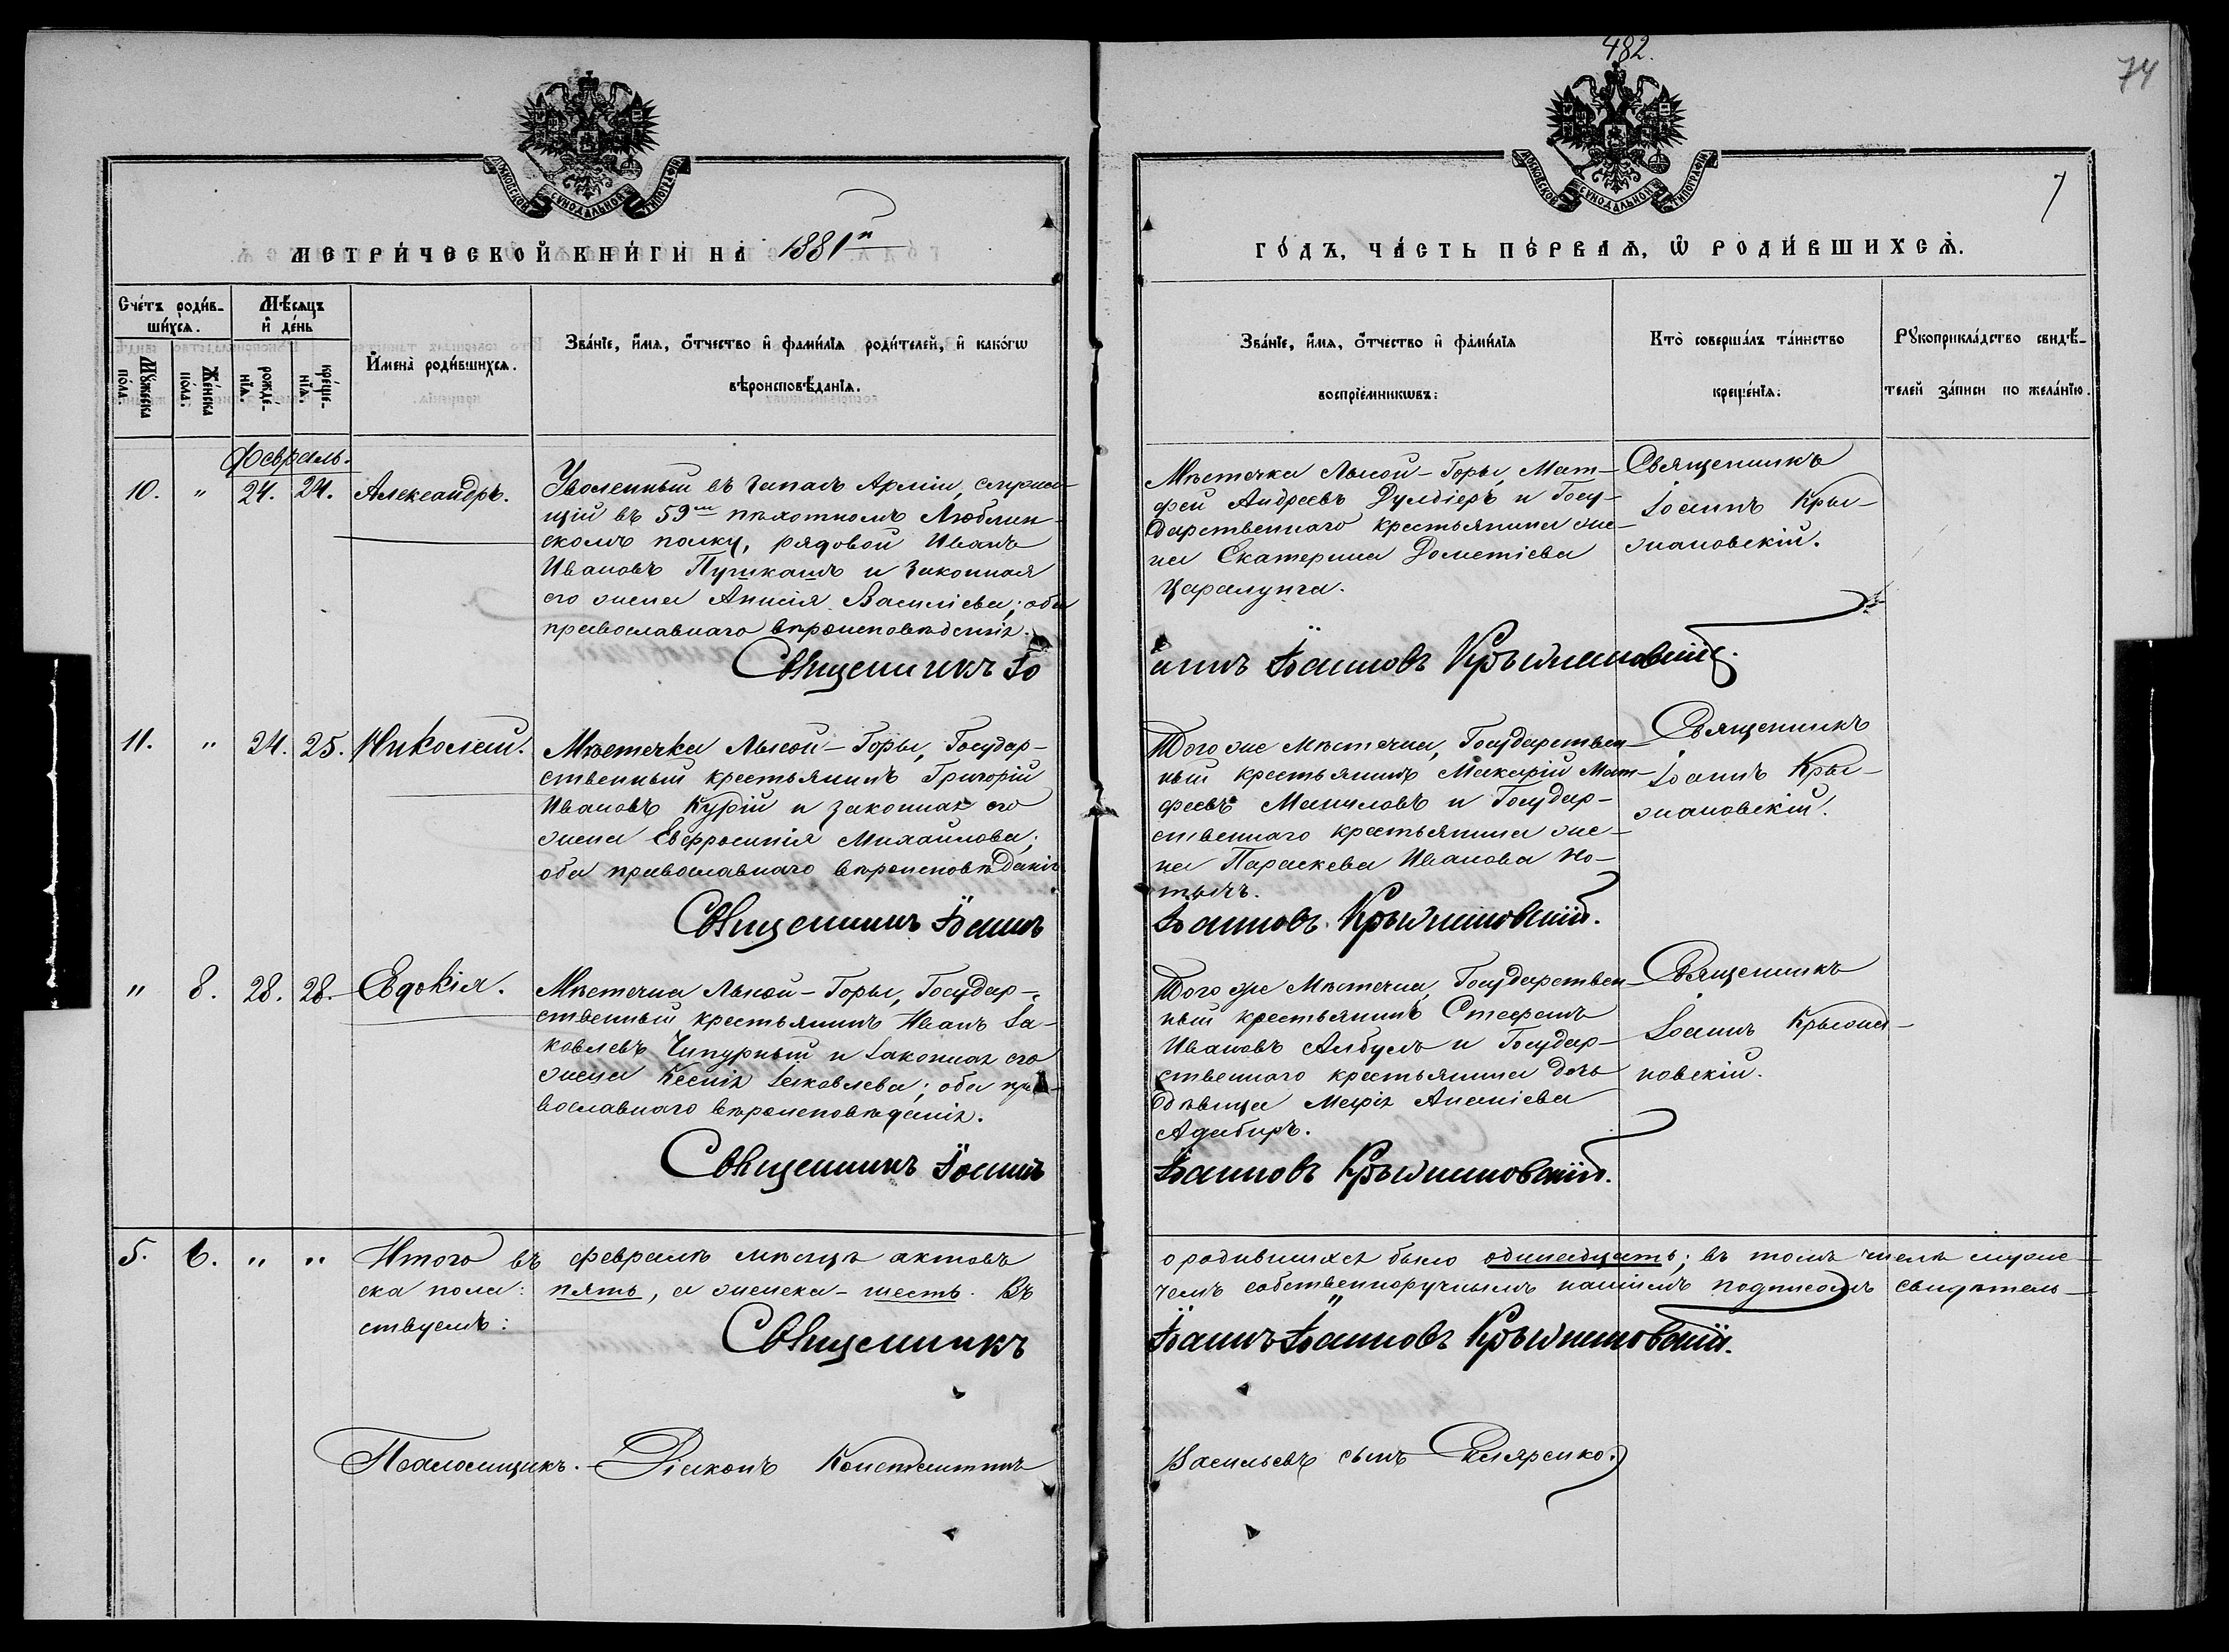 482.
74
МОСКОВСКОЙ СѴНОДАЛЬНОЙ ТИПОГРАФІИ
МОСКОВСКОЙ СѴНОДАЛЬНОЙ ТИПОГРАФІИ
7
МЕТРИ́ЧЕСКОЙ КНИ́ГИ НА 1881й
ГО́ДЪ, ЧА́СТЬ ПЕ́РВАѦ, Ѽ РОДИ́ВШИХСѦ.
Сче́тъ роди́в-
ши́хсѧ.
Мꙋ́жеска по́ла.
Же́нска по́ла.
Мѣ́сѧцъ
и҆ де́нь
рожде́-
нїѧ.
креще́-
нїѧ.
И҆мена̀ роди́вшихсѧ.
Зва́нїе, и҆́мѧ, ѻ҆́тчество и҆ фами́лїѧ роди́телей, и҆ како́гѡ
вѣроисповѣ́данїѧ.
Зва́нїе, и҆́мѧ, ѻ҆́тчество и҆ фами́лїѧ
воспрїе́мникѡвъ:
Кто̀ соверша́лъ та́инство
креще́нїѧ:
Рꙋкоприкла́дство свидѣ́-
телей за́писи по жела́нїю.
Февраль.
10. " 24. 24. Александръ.
Уволенный въ Запасъ Арміи, служа-
щій въ 59м пѣхотномъ Люблин-
скомъ полку, рядовой Иванъ
Ивановъ Пушкашъ и законная
его жена Анисія Василіева; оба
православнаго вѣроисповѣданія.
Мѣстечка Лысой-Горы, Мат-
фей Андреевъ Дулдіеръ и Госу-
дарственнаго крестьянина же-
на Екатерина Дометіева
Царалунга.
Священникъ
Іоаннъ Кры-
жановскій.
Священникъ Іо
аннъ Іоанновъ Крыжановскій.
11. " 24. 25. Николай.
Мѣстечка Лысой-Горы, Государ-
ственный крестьянинъ Григорій
Ивановъ Курій и законная его
жена Евфросинія Михайлова;
оба православнаго вѣроисповѣданія.
Того же Мѣстечка, Государствен-
ный крестьянинъ Макарій Мат-
феевъ Маниловъ и Государ-
ственнаго крестьянина же-
на Параскева Иванова Но-
тычъ.
Священникъ
Іоаннъ Кры-
жановскій.
Священникъ Іоаннъ
Іоанновъ Крыжановскій.
" 8. 28. 28. Евдокія.
Мѣстечка Лысой-Горы, Государ-
ственный крестьянинъ Иванъ Іа-
ковлевъ Чипурный и законная его
жена Ксенія Іаковлева; оба пра-
вославнаго вѣроисповѣданія.
Того же Мѣстечка, Государствен-
ный крестьянинъ Стефанъ
Ивановъ Албулъ и Государ-
ственнаго крестьянина дочь
дѣвица Марія Ананіева
Адабиръ.
Священникъ
Іоаннъ Крыжа-
новскій.
Священникъ Іоаннъ
Іоанновъ Крыжановскій.
5. 6. " " Итого въ февралѣ мѣсяцѣ актовъ
о родившихся было одинадцать; въ томъ числѣ муже-
ска пола: пять, а женска - шесть. Въ
чемъ собственноручнымъ нашимъ подписомъ свидѣтель-
ствуемъ:
Священникъ
Іоаннъ Іоанновъ Крыжановскій.
Псаломщикъ. - Діаконъ Константинъ
Васильевъ сынъ Скляренко.